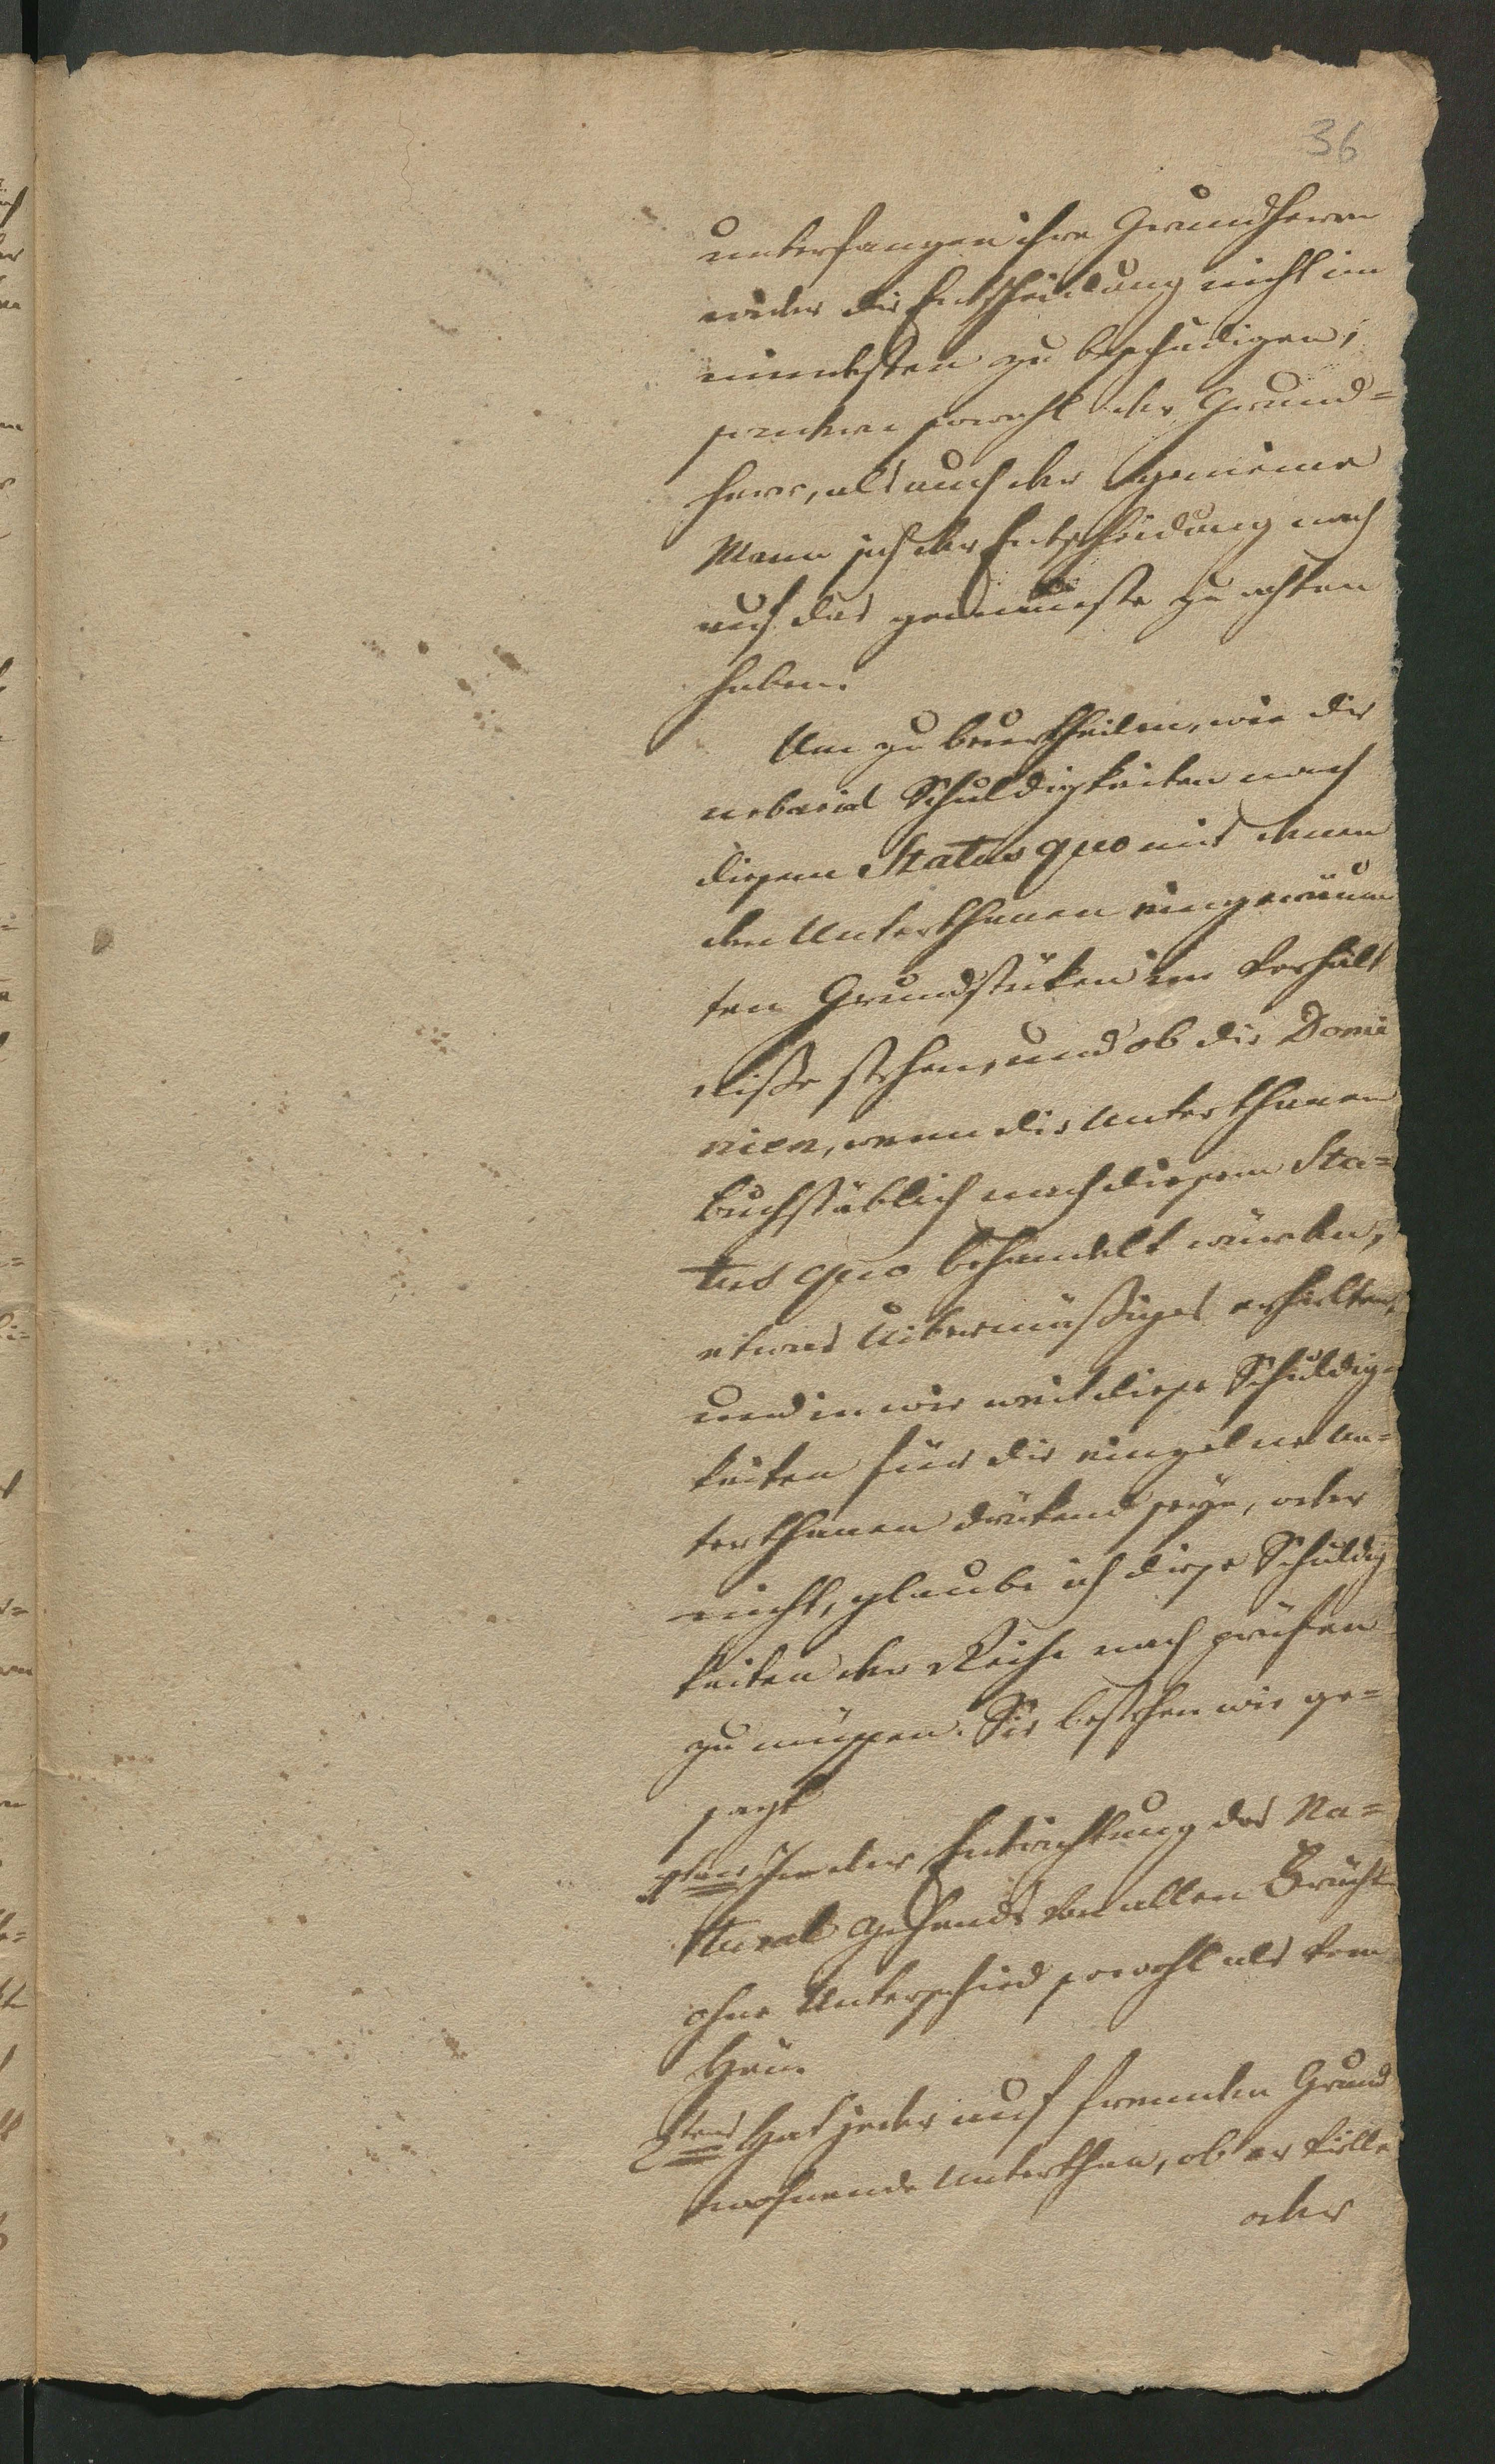 36
unterfangen ihre Grundherrn
wider die Entscheidung nicht im
mindesten zu beschädigen,
sondern sowohl der Grund=
herr, als auch der gemeine
Mann sich der Entscheidung nach
auf das genaueste zu achten
haben.
Um zu beurtheilen, wie die
urbarial Schuldigkeiten nach
diesem Status quo mit denen
den Unterthanen eingeräum
ten Grundstüken im Verhält
niße stehen, und ob die Domi
nien, wenn die Unterthanen
buchstäblich nach diesem Sta=
tus quo behandelt würden,
etwas Uibermäßiges erhielten,
und in wie weit diese Schuldig=
keiten für die einzelne Un=
terthanen drükend seye, oder
nicht, glaube ich diese Schuldig
keiten der Reihe nach prüfen
zu müssen. Sie bestehen wie ge=
sagt
1tens In der Entrichtung des Na=
tural Zehends von allen Früchten
ohne Unterschied sowohl als vom
Heu.
2tens Hat jeder auf fremden Grund
wohnende Unterthan, ob er viele
oder